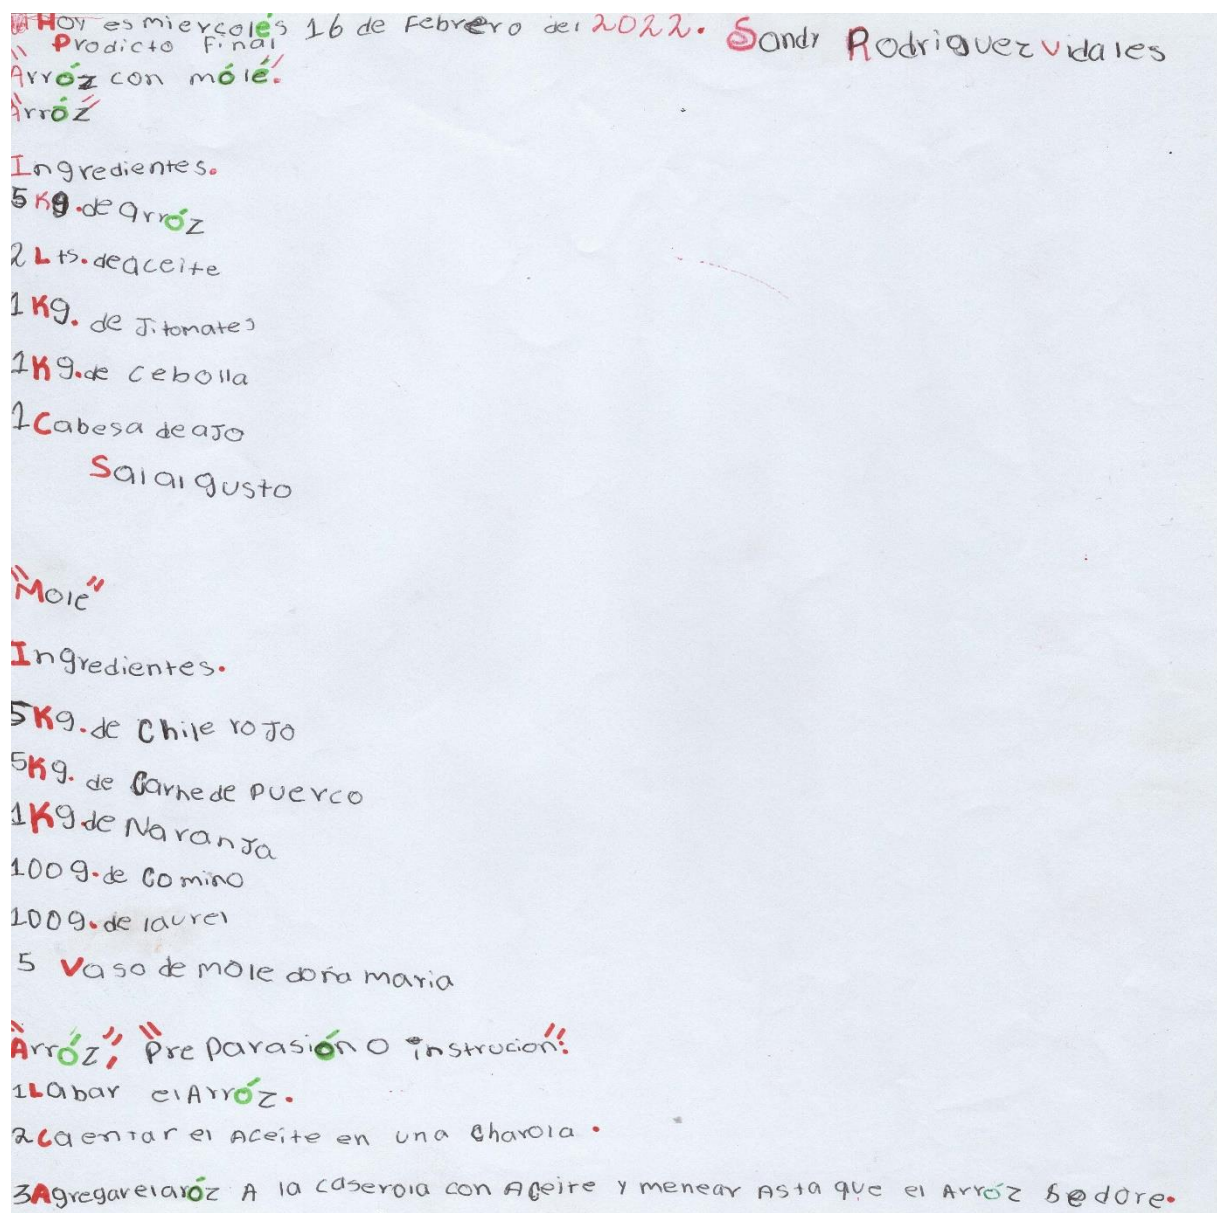 Hoy es miercolés 16 de Febrero del 2022. Sandy Rodriguez Vidales
"Prodicto Final
Arróz con mólé."
"Arróz"
Ingredientes.
5 Kg. de arróz
2 Lts. de aceite
1 Kg. de Jitomates
1 Kg. de cebolla
1 Cabesa de aJo
Sal al gusto
"Mole"
Ingredientes.
5 Kg. de Chile roJo
5 Kg. de Carne de Puerco
1 Kg de NaranJa
100 g. de Comino
100 g. de laurel
5 Vaso de mole doña maria
"Arróz"; "Pre parasión o instrucion":
1 Labar el Arróz.
2 Caentar el Aceite en una Charola.
3 Agregar el aróz A la caserola con Aceite y menear Asta que el Arróz se dore.